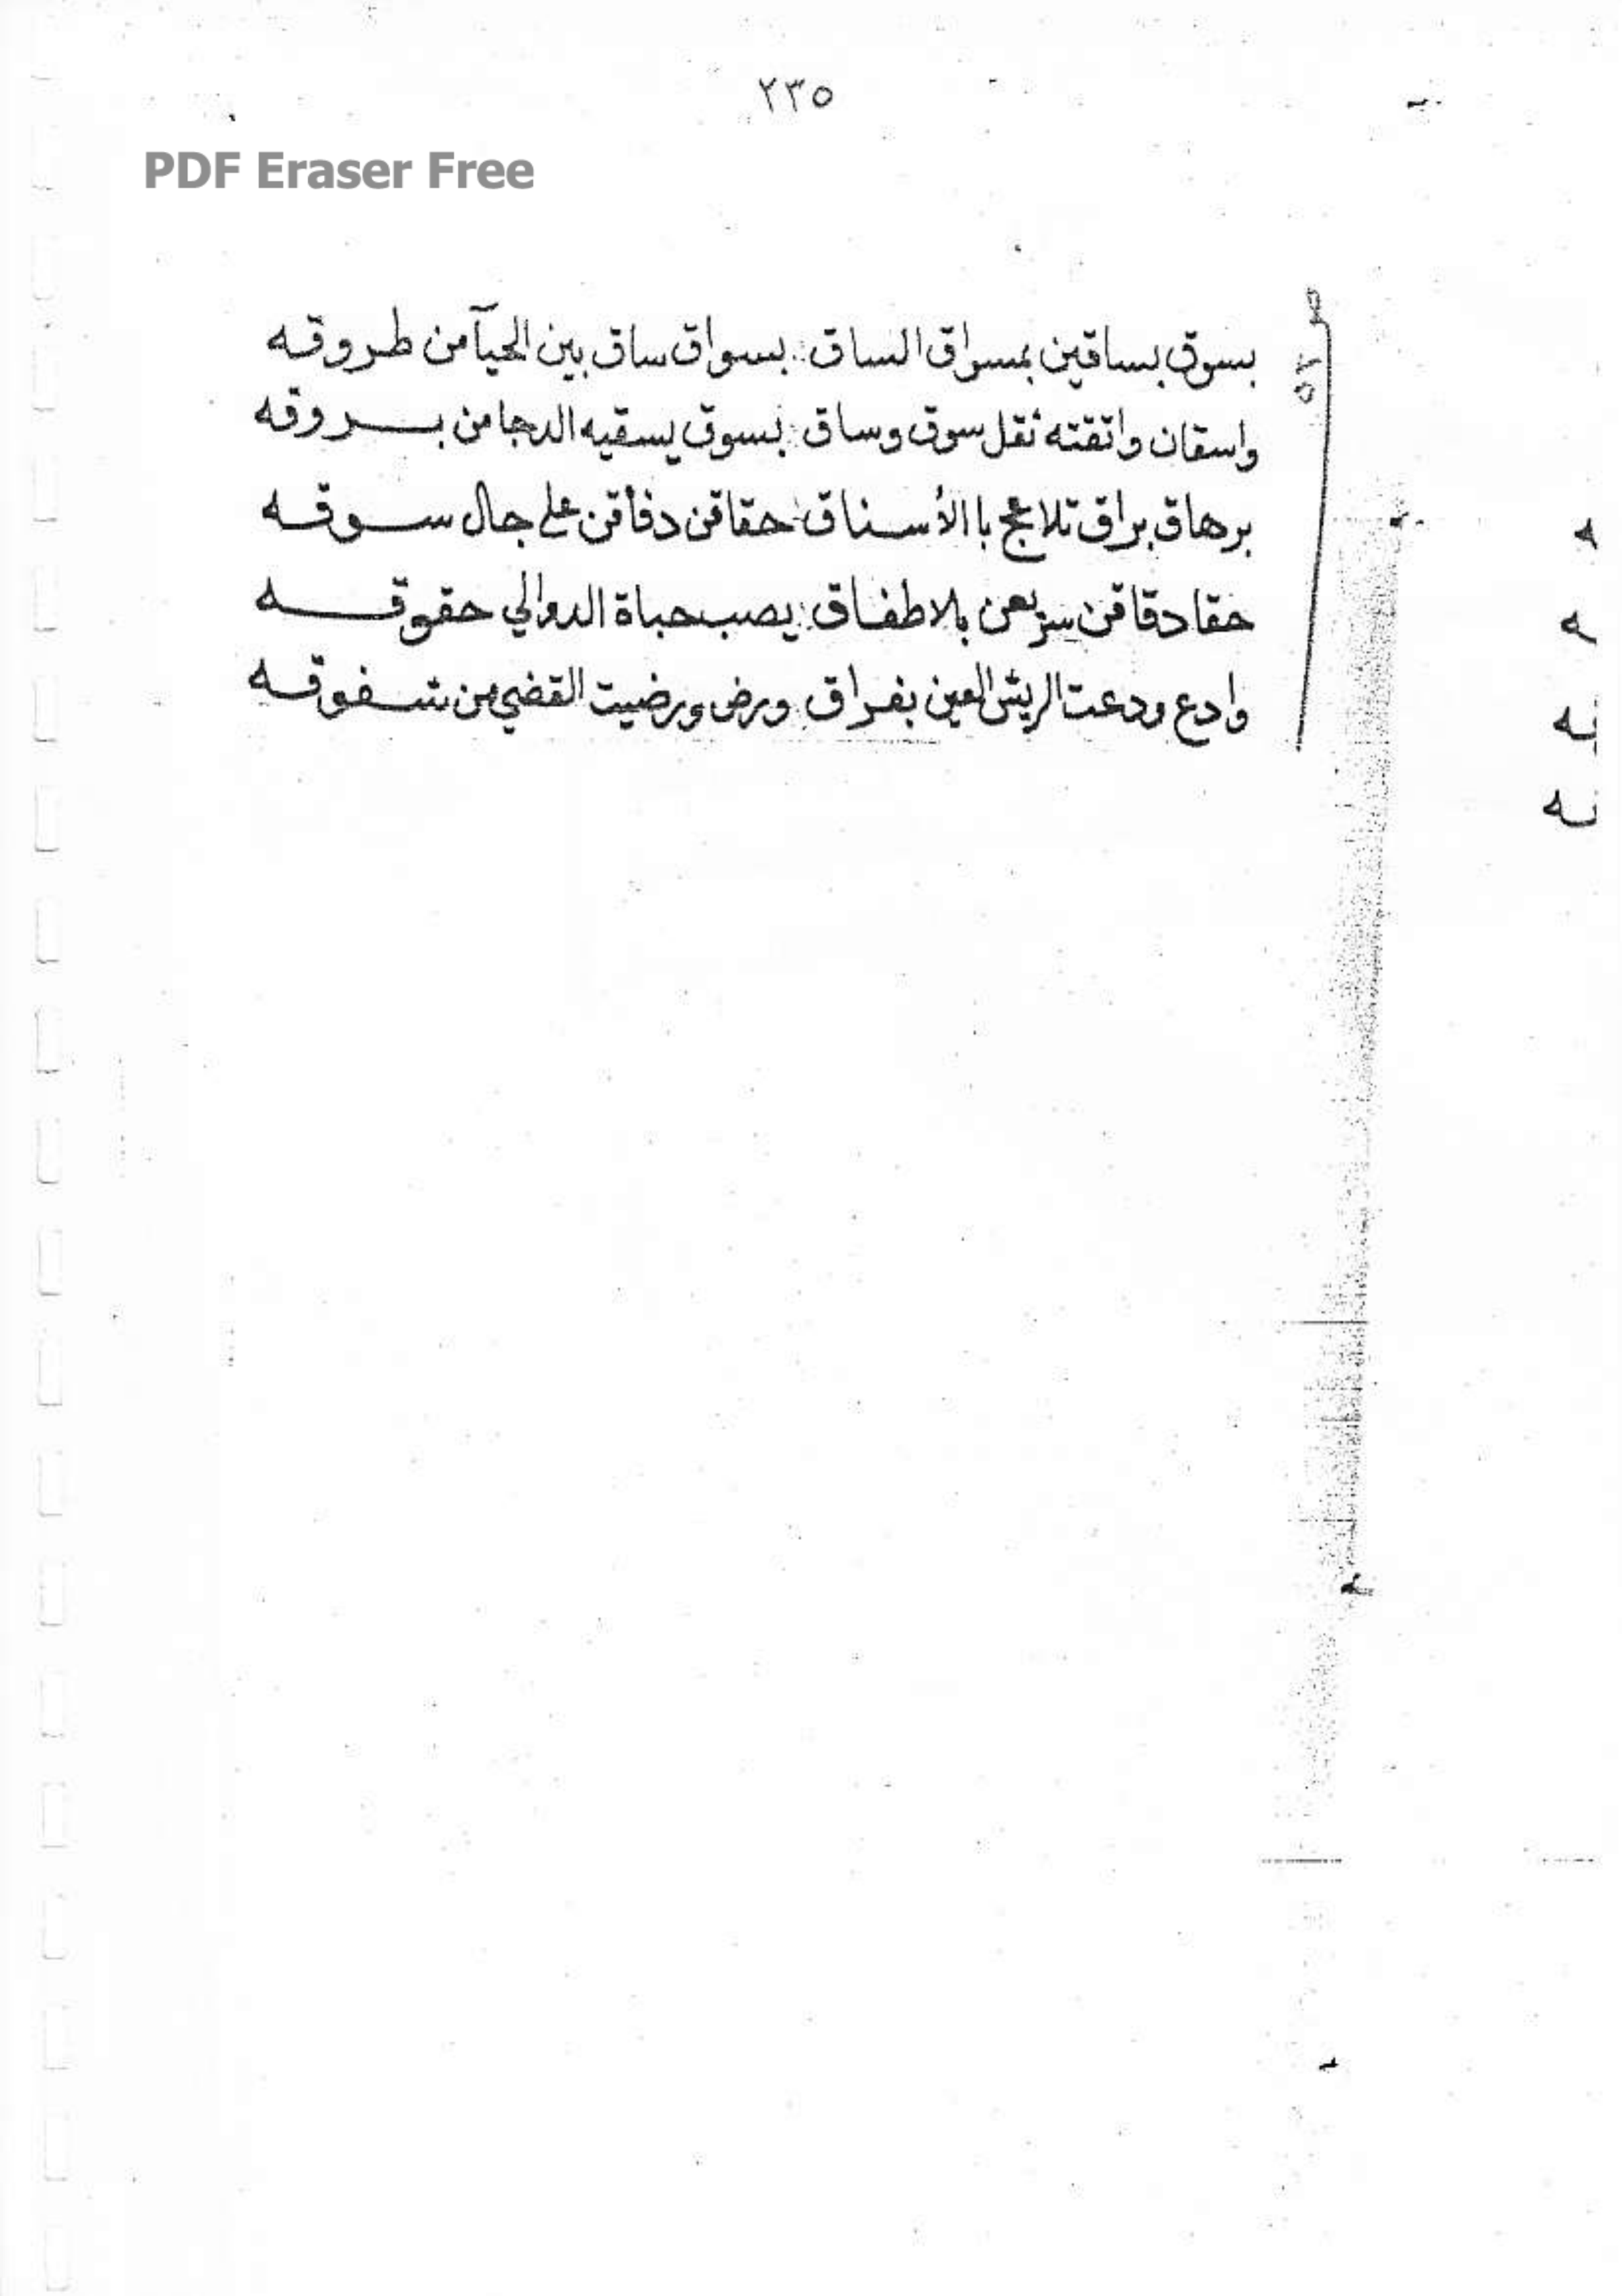 ٢٣٥
PDF Eraser Free
بسوق بساقين بمسواق الساق بسواق ساق بين الحيآ من طروقه
واسقان واتقته ثقل سوق وساق بسوق يسقيه الدجا من بروقه
برهاق براق تلاعج با الأسناق حقاقن دفأقن على جال سوقه
حقا دقاقن سريعن بلاطفاق يصب حباة الدوالي حقوقه
وادع ودعت الريش العين بفراق ورض ورضيت القضي من شفوقه